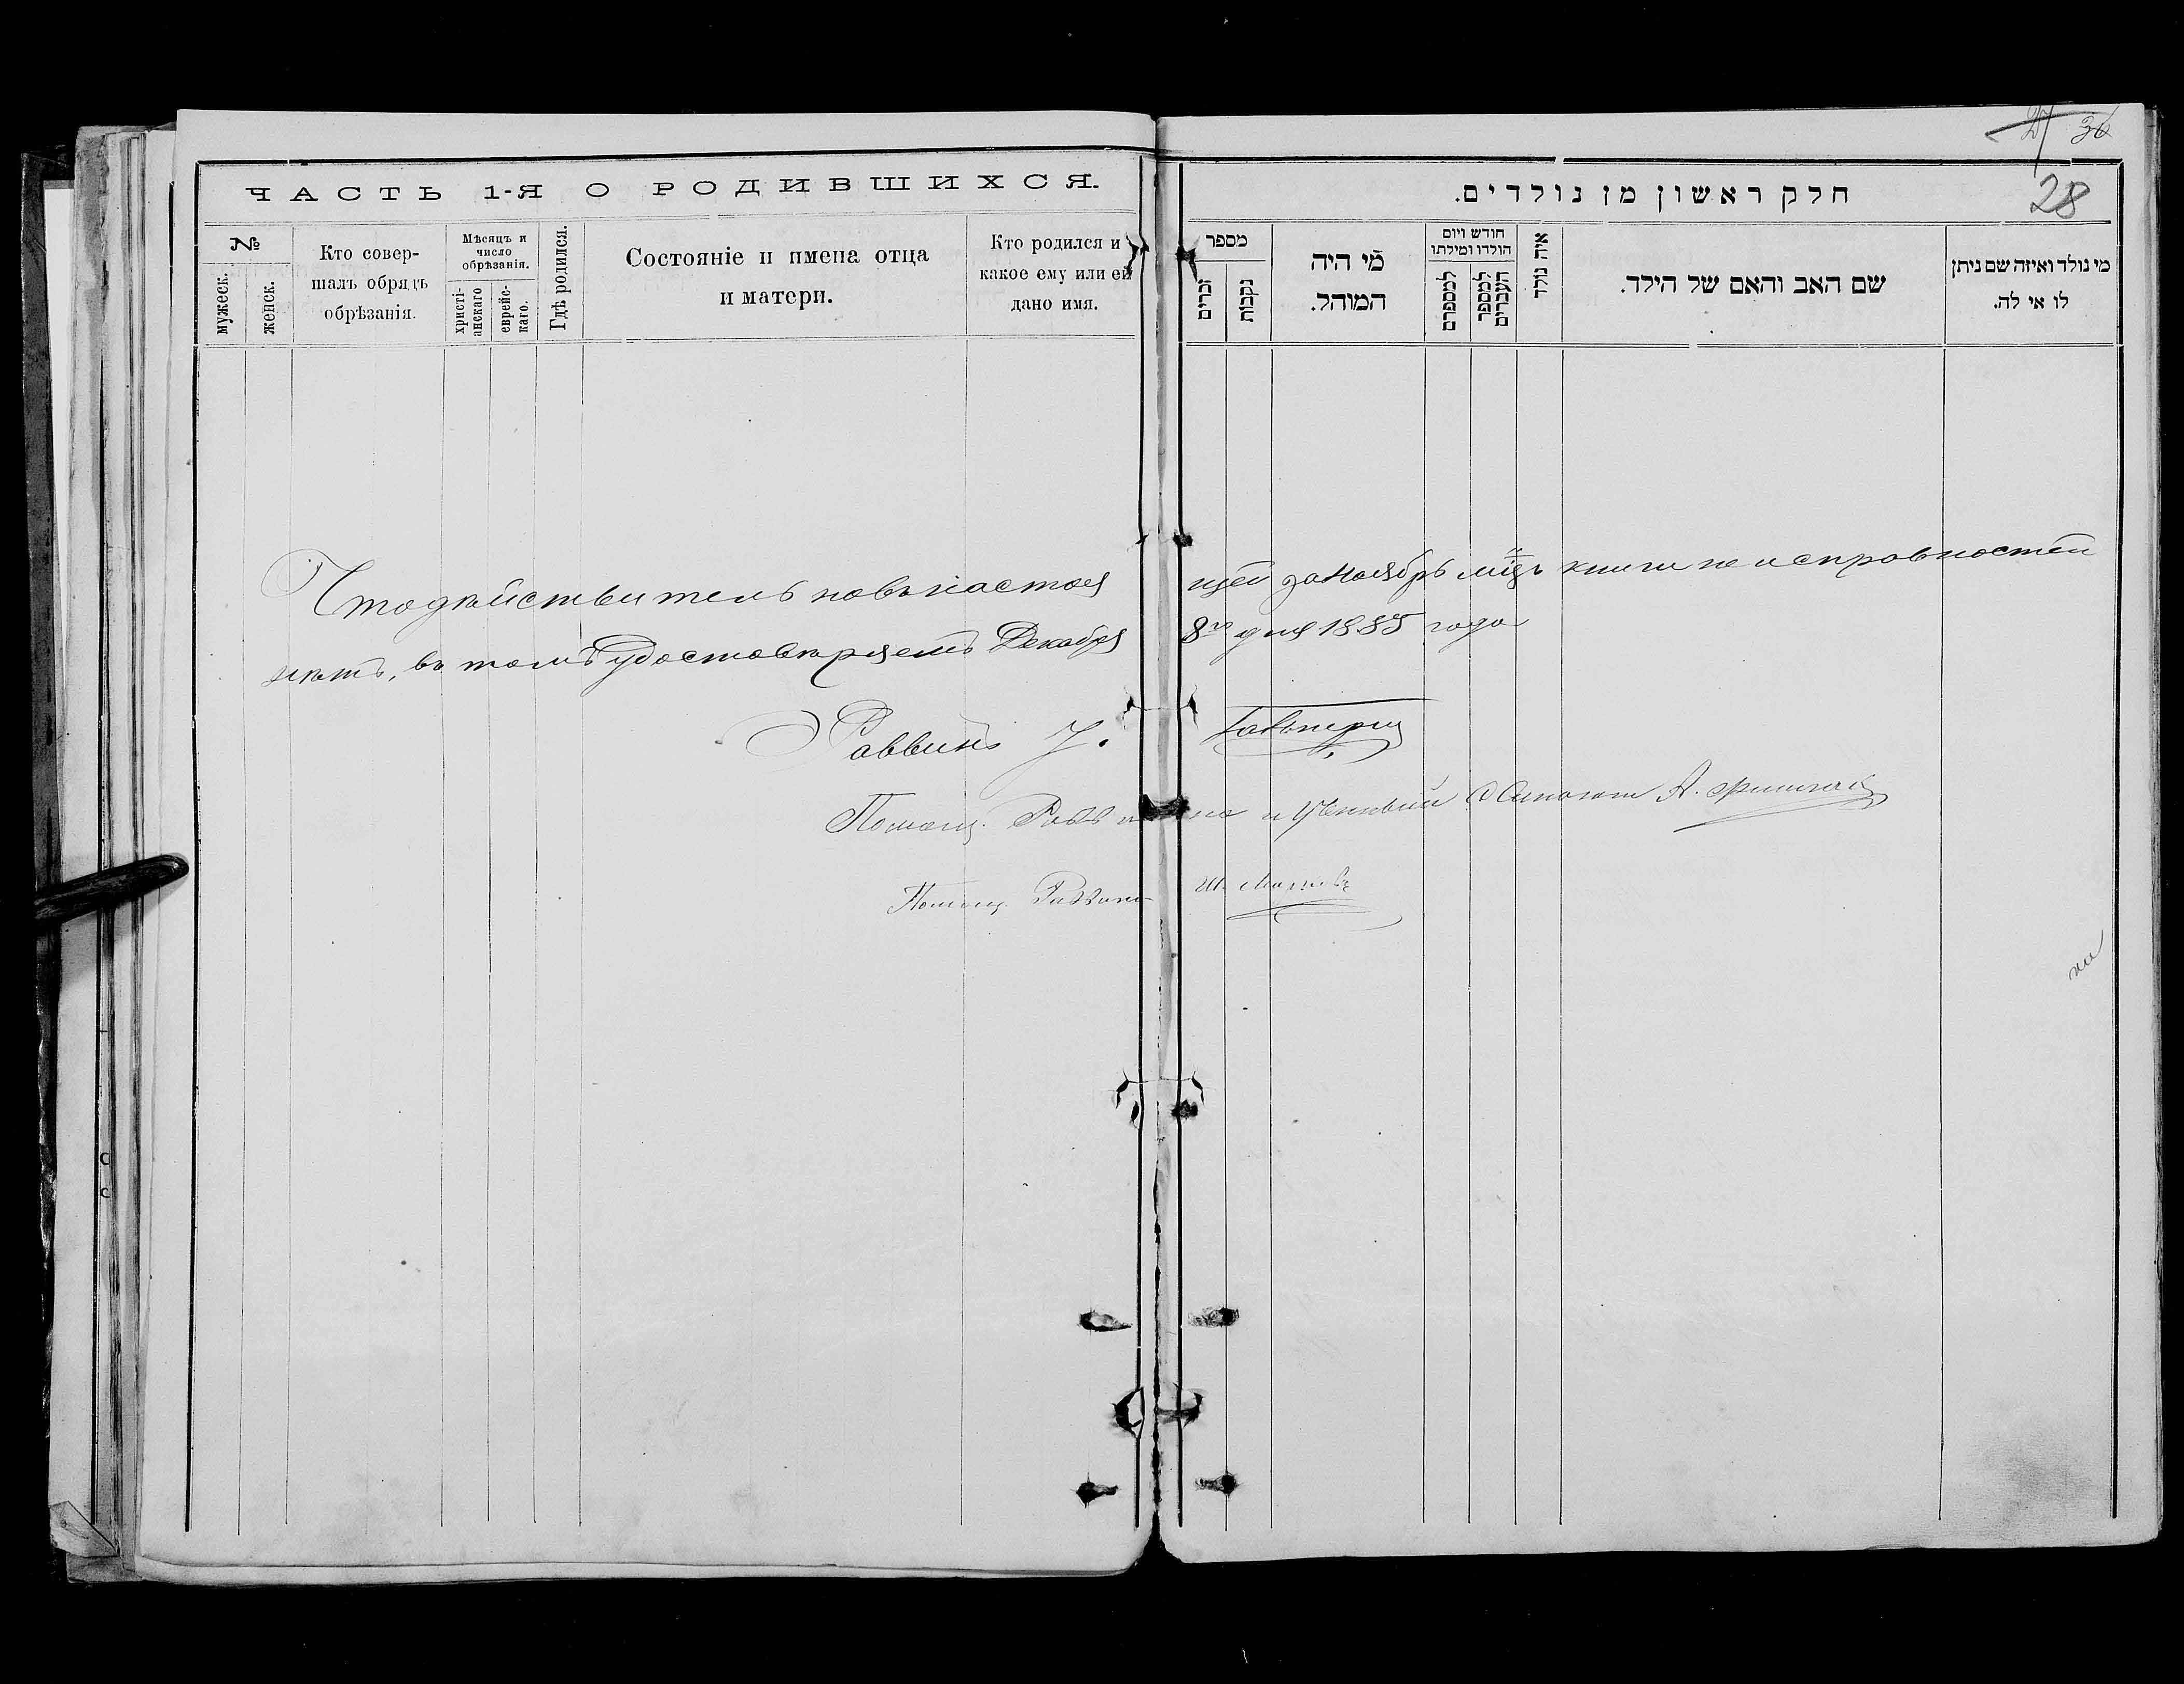 27 36
28
ЧАСТЬ 1-Я О РОДИВШИХСЯ.
№
мужеск.
женск.
Кто совер-
шалъ обрядъ
обрѣзанія.
Мѣсяцъ и
число
обрѣзанія.
христі-
анскаго
еврейс-
каго.
Гдѣ родился.
Состояніе и имена отца
и матери.
Кто родился и
какое ему или ей
дано имя.
חלק ראשון מן נולדים.
מספר
זכרים
נקבות
מי היה
המוהל.
חודש ויום
הולדו ומילתו
למספרם
למספר
העברים
איה נולד
שם האב והאם של הילד.
מי נולד ואיזה שם ניתן
לו אי לה.
Что дѣйствительно въ настоя щей за Ноябрь мцъ книги не исправностей
нѣтъ, въ томъ удостовѣряемъ Декабря 8го дня 1885 года
Раввинъ
Помощ. Раввина и
Помощ. Раввина